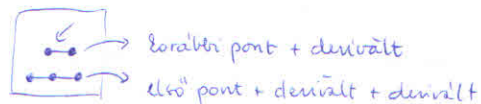 korábbi pont + derivált
első pont + derivált + derivált